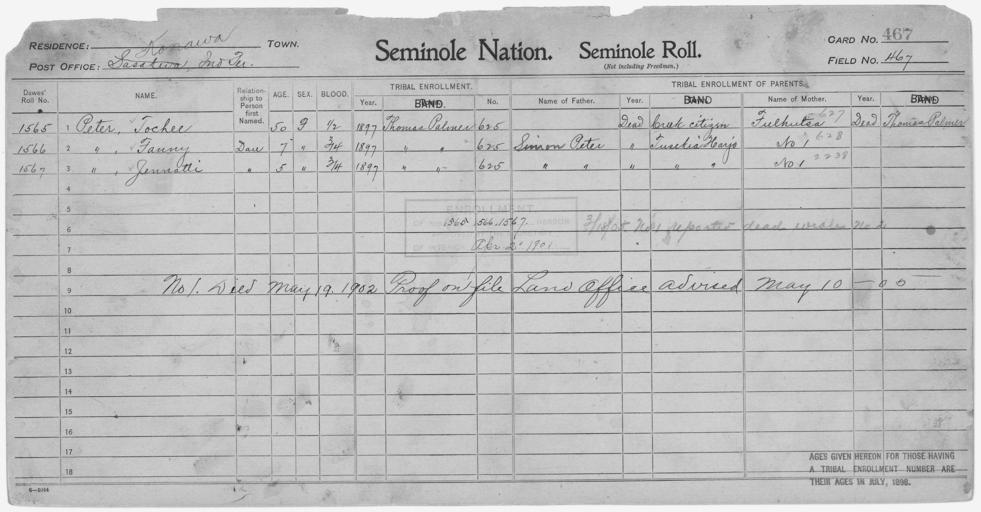 RESIDENCE: Konawa TOWN.
POST OFFICE: Sasakwa, Ind Ter.
Seminole Nation. Seminole Roll.
(Not including Freedmen.)
CARD NO. 467
FIELD NO. 467
Dawes' Roll No. NAME. Relationship to Person first Named. AGE. SEX. BLOOD. TRIBAL ENROLLMENT. Year. BAND. No. TRIBAL ENROLLMENT OF PARENTS. Name of Father. Year. BAND Name of Mother. Year. BAND
1565 1 Peter, Tochee 50 1/2 1897 Thomas Palmer 625 Dead Creek citizen Fulhutsa 627 Dead Thomas Palmer
1566 2 " , Fanny Dau 7 " 3/4 1897 " " 625 Simon Peter " Harjo No 1 628
1567 3 " , " 5 " 3/4 1897 " " 625 " " " " " No 1
4
5
ENROLLMENT
1565 1566 1567
6 No 1 reported dead
7 Apr 2 1901
8
9 No 1. Died May 19, 1902 Proof on file Land Office advised May 10 —00
10
11
12
13
14
15
16
17
18
AGES GIVEN HEREON FOR THOSE HAVING
A TRIBAL ENROLLMENT NUMBER ARE
THEIR AGES IN JULY, 1898.